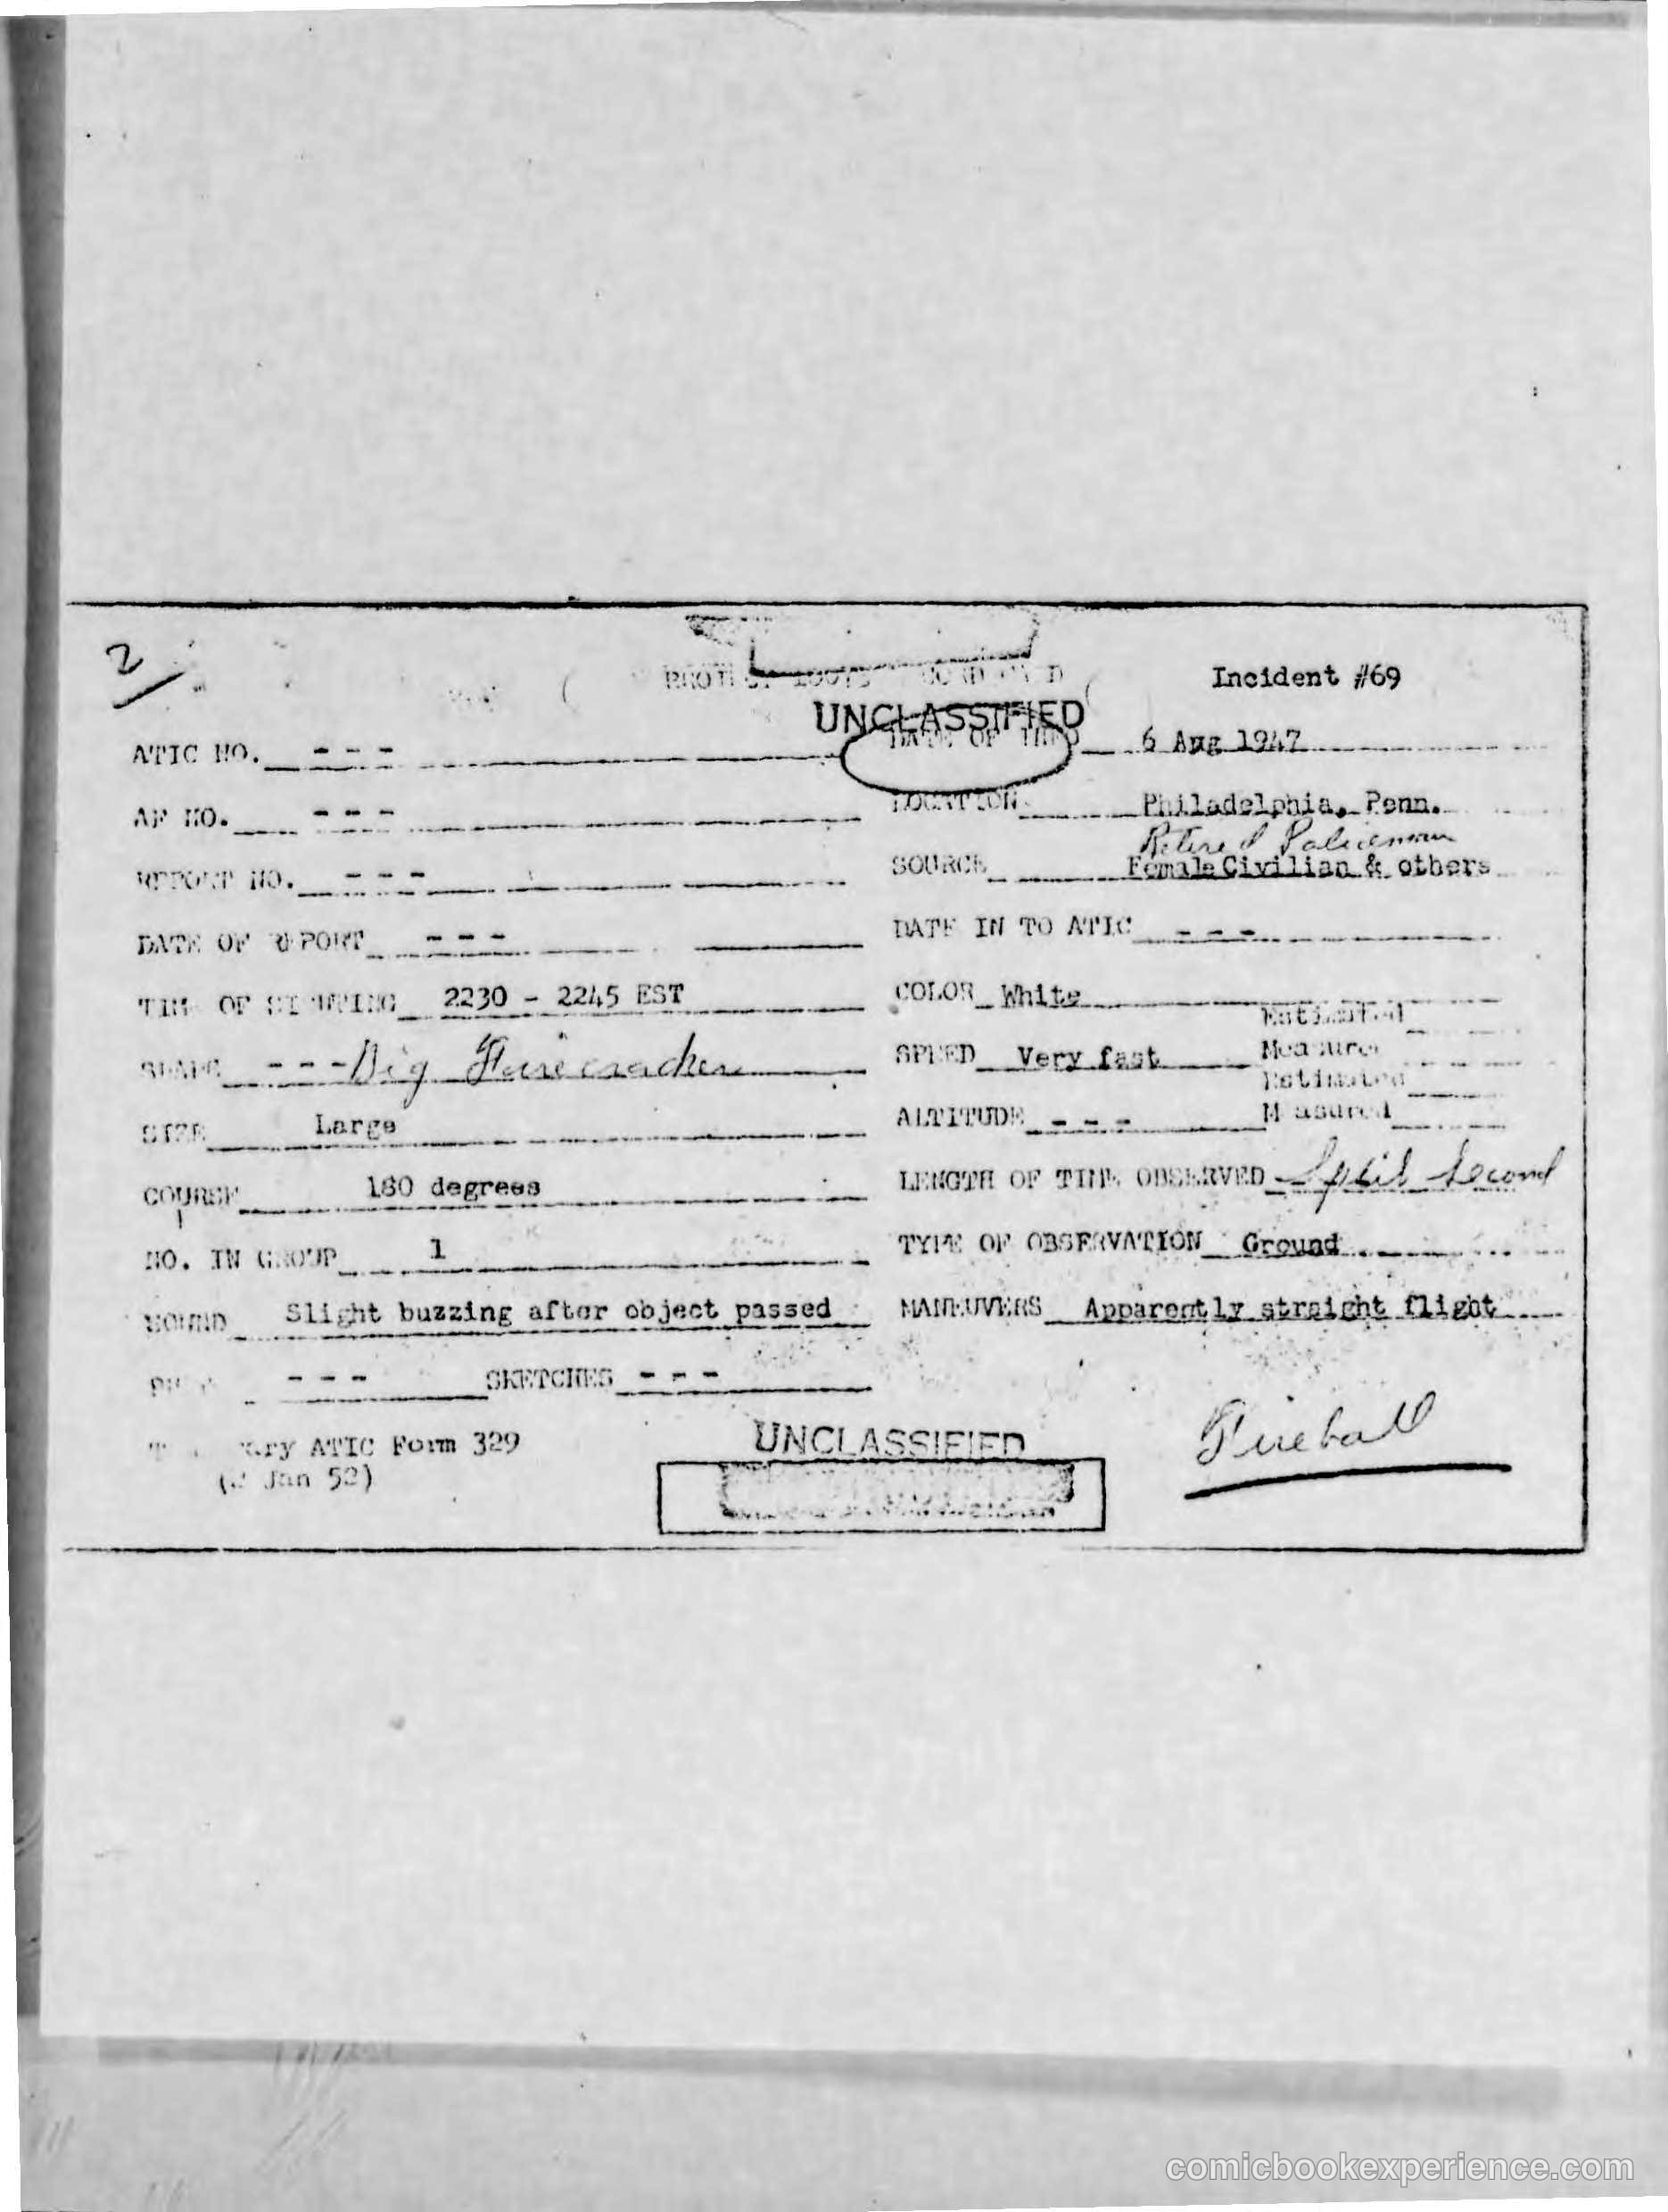 2
Incident #69
UNCLASSIFIED
ATIC NO. - - -
DATE OF INFO 6 Aug 1947
AF NO. - - -
LOCATION Philadelphia, Penn.
Retired Policeman
REPORT NO. - - -
SOURCE Female Civilian & others
DATE OF REPORT - - -
DATE IN TO ATIC - - -
TIME OF SIGHTING 2230 - 2245 EST
COLOR White
Estimated
SHAPE - - - Big Firecracker
SPEED Very fast Measured
Estimated
SIZE Large
ALTITUDE - - - Measured
COURSE 180 degrees
LENGTH OF TIME OBSERVED Split Second
NO. IN GROUP 1
TYPE OF OBSERVATION Ground
SOUND Slight buzzing after object passed
MANEUVERS Apparently straight flight
- - - SKETCHES - - -
Fireball
ATIC Form 329
Jan 52)
UNCLASSIFIED
comicbookexperience.com